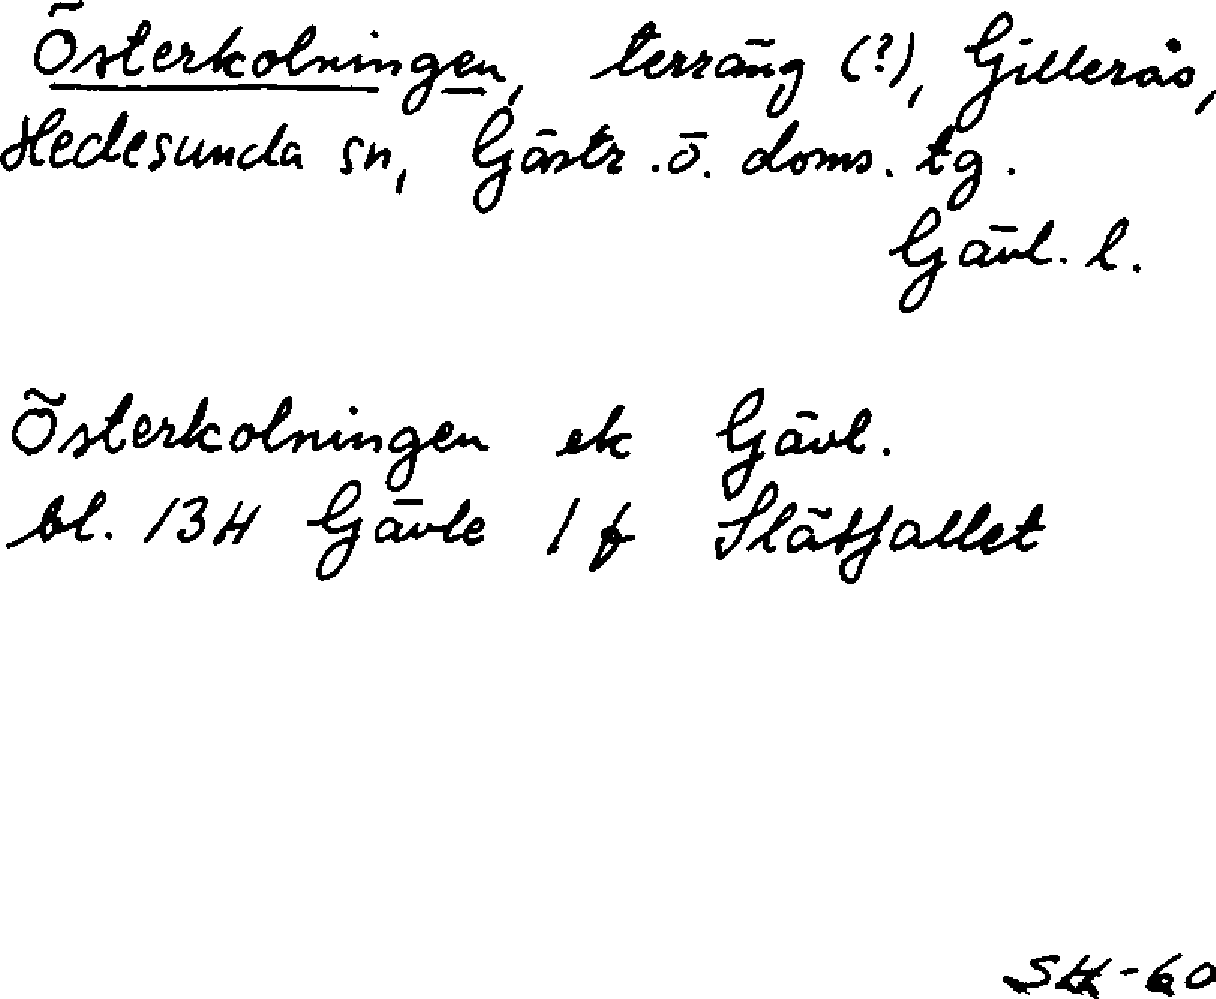 Österkolningen, terräng (?), Gillerås,
Hedesunda sn, Gästr. ö. doms. tg.
Gävl. l.
Österkolningen ek Gävl.
bl. 13H Gävle 1 f Slätfallet
SH-60